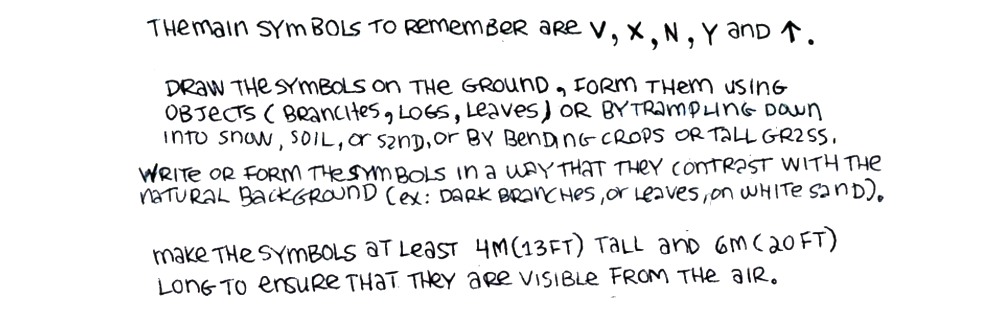 THE main SYmBOLS TO Remember are V, X, N, Y and ↑.
DRAW THE SYMBOLS on THE GROUND, FORM THEM USING
OBJECTS (BRANCHES, LOGS, Leaves) OR BY TRAMPLING DOWN
INTO SNOW, SOIL, or SAND, or BY BENDING CROPS OR TALL GRASS.
WRITE OR FORM THE SYMBOLS IN a WAY THAT THEY CONTRAST WITH THE
NATURAL BACKGROUND (ex: DARK BRANCHES, or Leaves, on WHITE SAND).
make THE SYMBOLS AT LEAST 4M(13FT) TALL and 6M(20FT)
LONG TO ensure THAT THEY are VISIBLE FROM THE AIR.